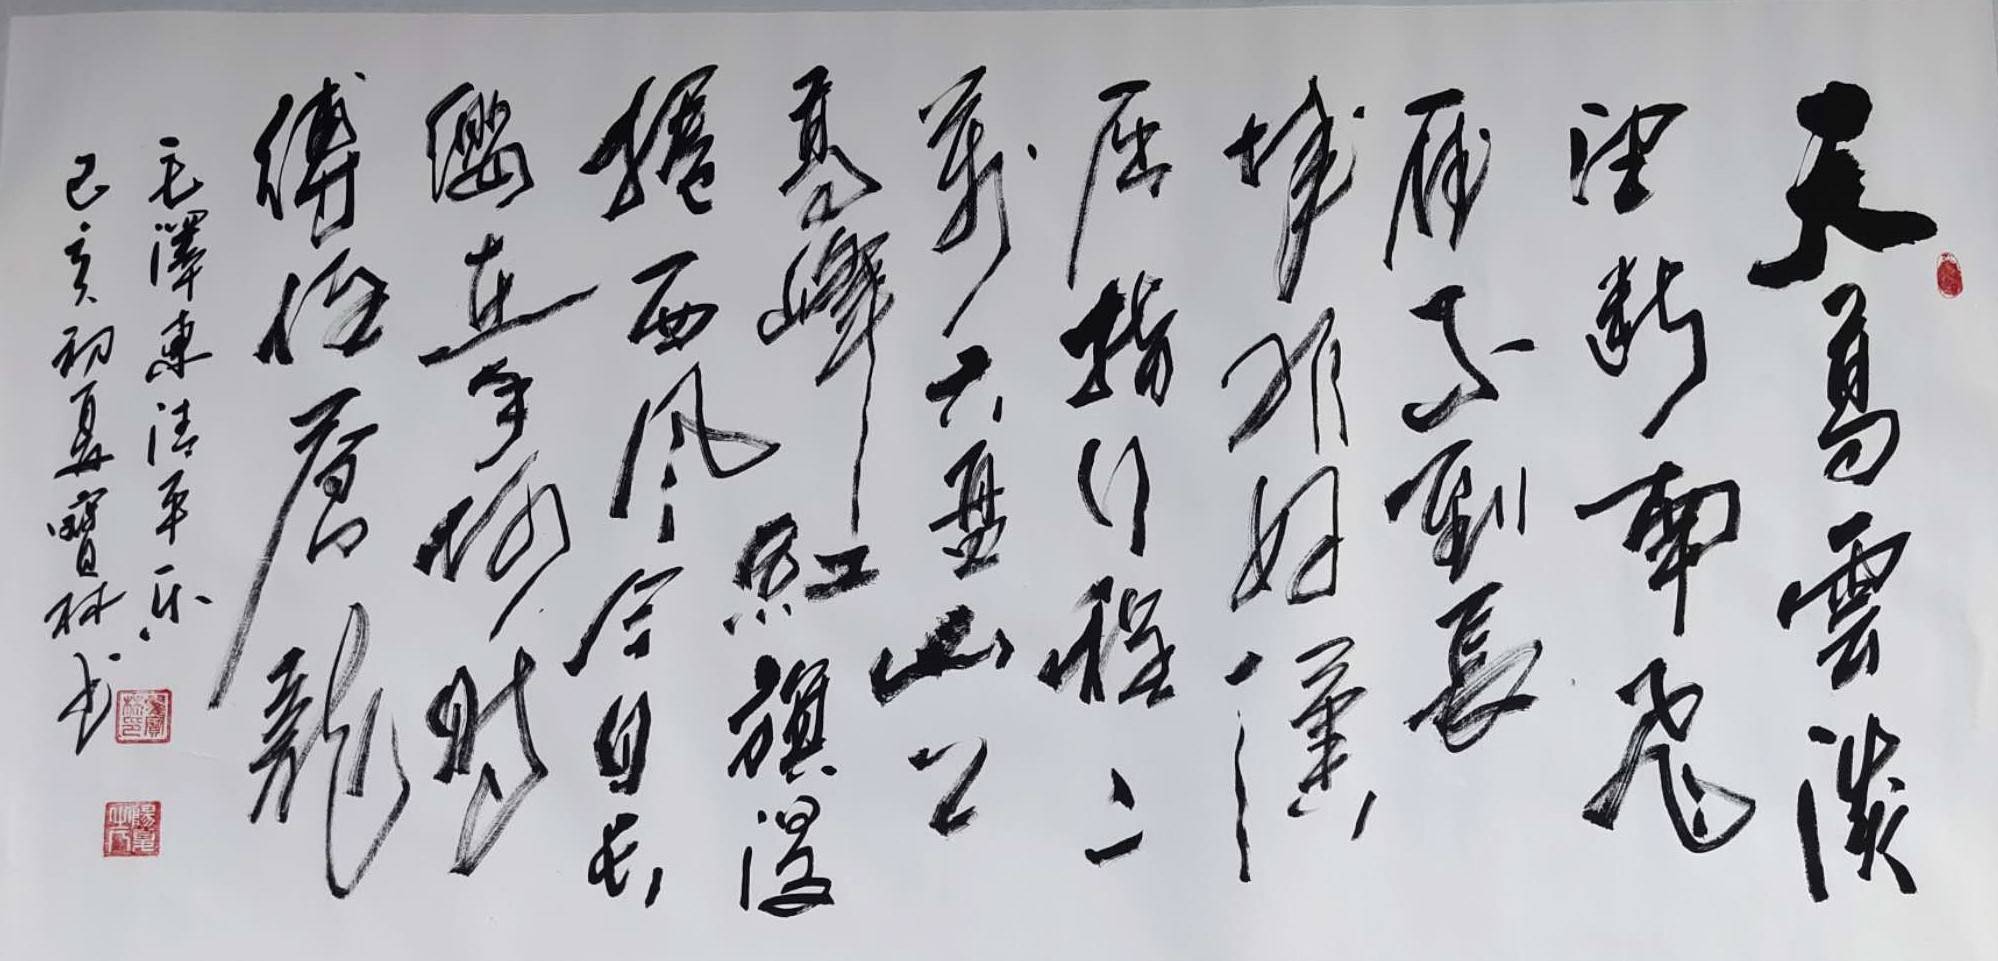 天高雲淡
望斷南飛
雁不到長
城非好漢
屈指行程二
萬六盤山上
高峰紅旗漫
捲西风今日长
纓在手何時
縛住蒼龍
毛澤東清平乐
己亥初夏寶林书